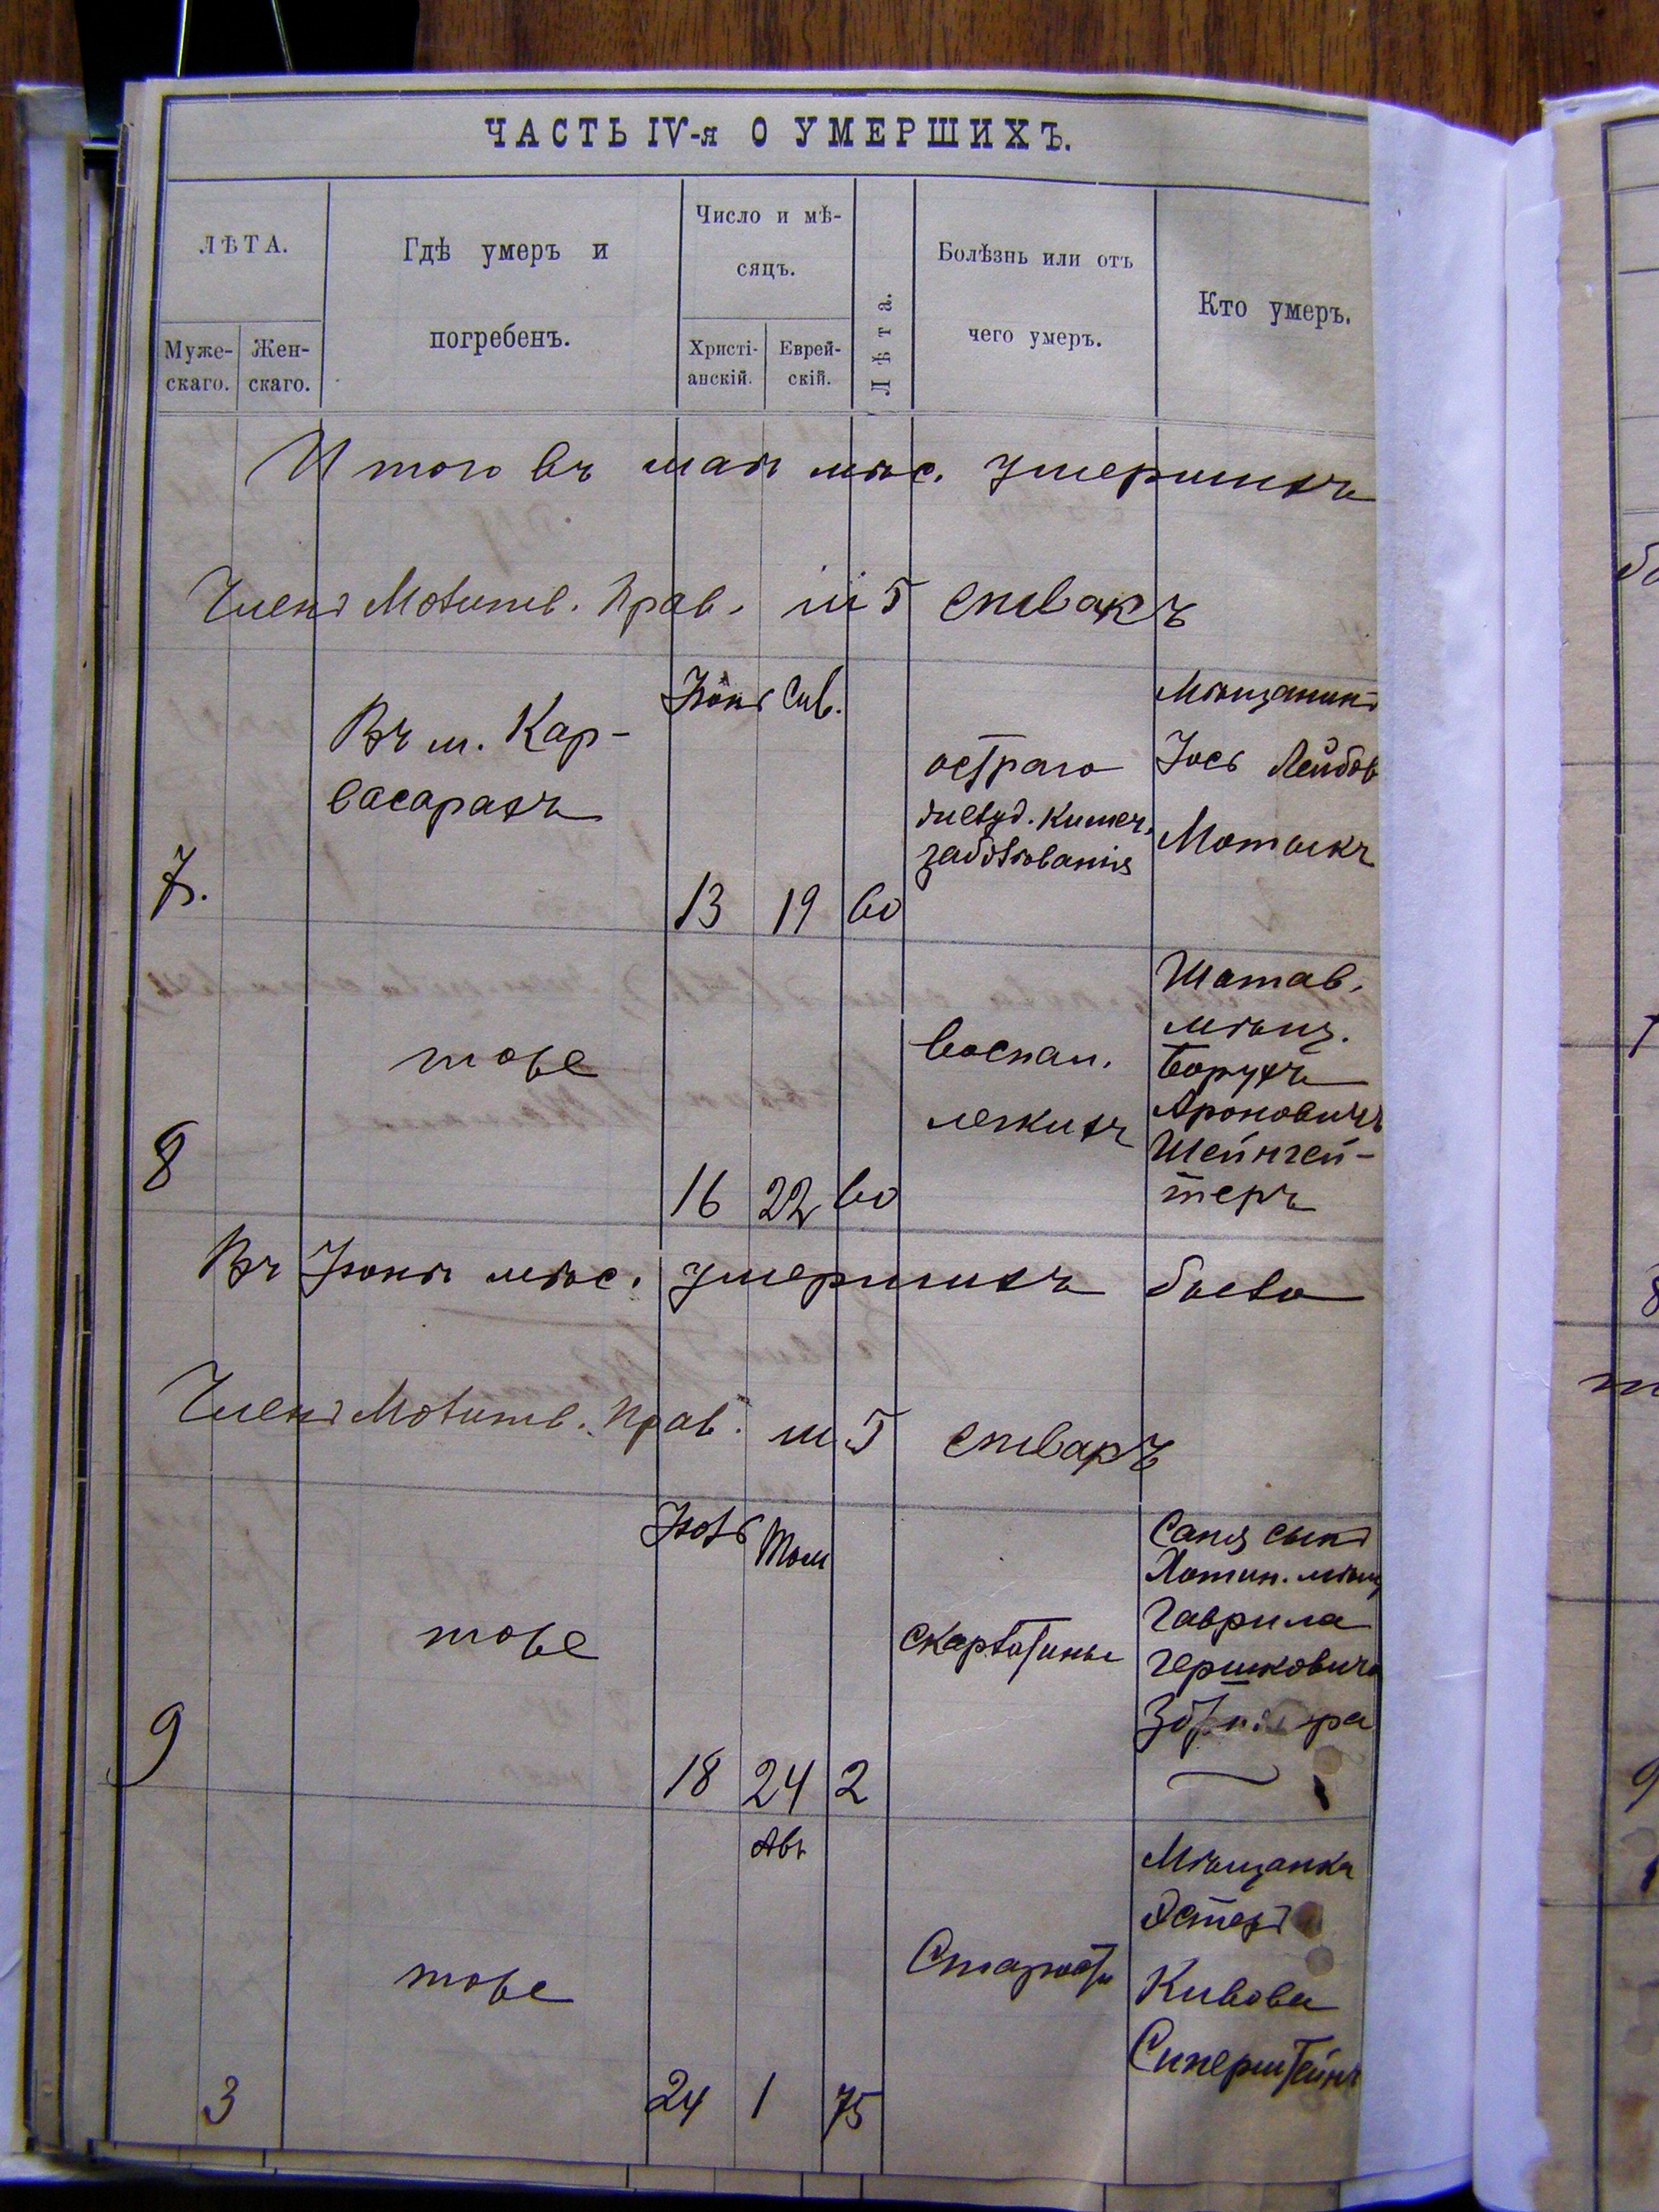 ЧАСТЬ IV-я О УМЕРШИХЪ.
ЛѢТА.
Муже-
скаго.
Жен-
скаго.
Гдѣ умеръ и
погребенъ.
Число и мѣ-
сяцъ.
Христі-
анскій.
Еврей-
скій.
Лѣта.
Болѣзнь или отъ
чего умеръ.
Кто умеръ.
Итого въ маѣ мѣс. умершихъ
Членъ Молитв. Прав.
7.
Въ м. Кар-
васарахъ
Іюнь Сив.
13 19 60
остраго
желуд. кишеч.
заболѣванія
Мѣщанинъ
Іось Лейбов
Мотыкъ
8
тоже
16 22 60
воспал.
легкихъ
Шатав.
мѣщ.
Борухъ
Ароновичъ
Шейнгей-
теръ
Въ Іюнѣ мѣс. умершихъ было
Членъ Молитв. Прав.
9
тоже
Іюль Там
18 24 2
скарлатины
Сапя сынъ
Хотин. мѣщ
Гаврила
Гершковича
3
тоже
Авъ
24 1 75
Старости
Мѣщанка
Эстеръ
Кивова
Сиперштейнъ